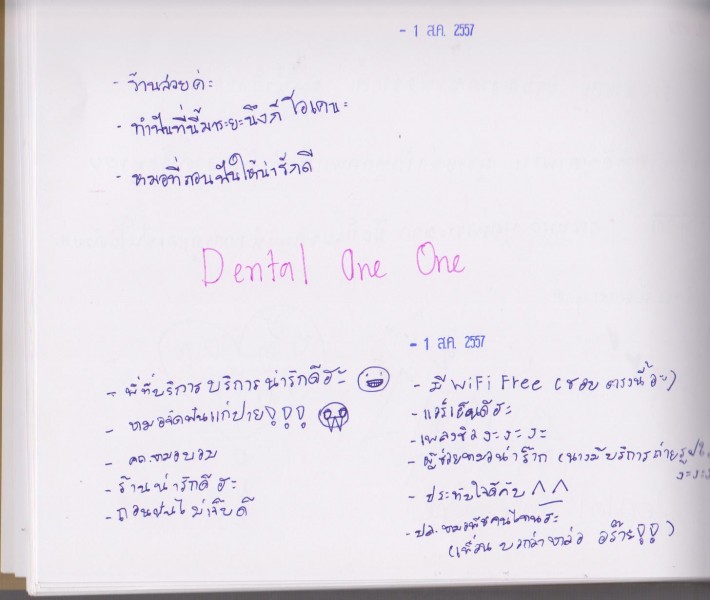 - 1 ส.ค. 2557
- ร้านสวยค่ะ
- ทำฟันที่นี้มาระยะนึงก็ โอเคนะ
- หมอที่ถอนฟันให้น่ารักดี
Dental One One
- พี่ที่บริการบริการน่ารักดีฮะ
- หมอจัดฟันแก่ปาย
- คถ.หมอบอม
- ร้านน่ารักดีฮะ
- ถอนฟันไม่เจ็บดี
- 1 ส.ค. 2557
- มี WiFi Free (ชอบตรงนี้อะ)
- แอร์เย็นดีฮะ
- เพลงชิว งะ งะ งะ
- ผู้ช่วยหมอน่าร๊าก (นางมีบริการถ่ายรูป
งะ งะ
- ประทับใจดีกับ ^^
- ปล. หมอพี่คนไหนฮะ
(เพื่อน บอกว่าหล่อ อร๊าย)